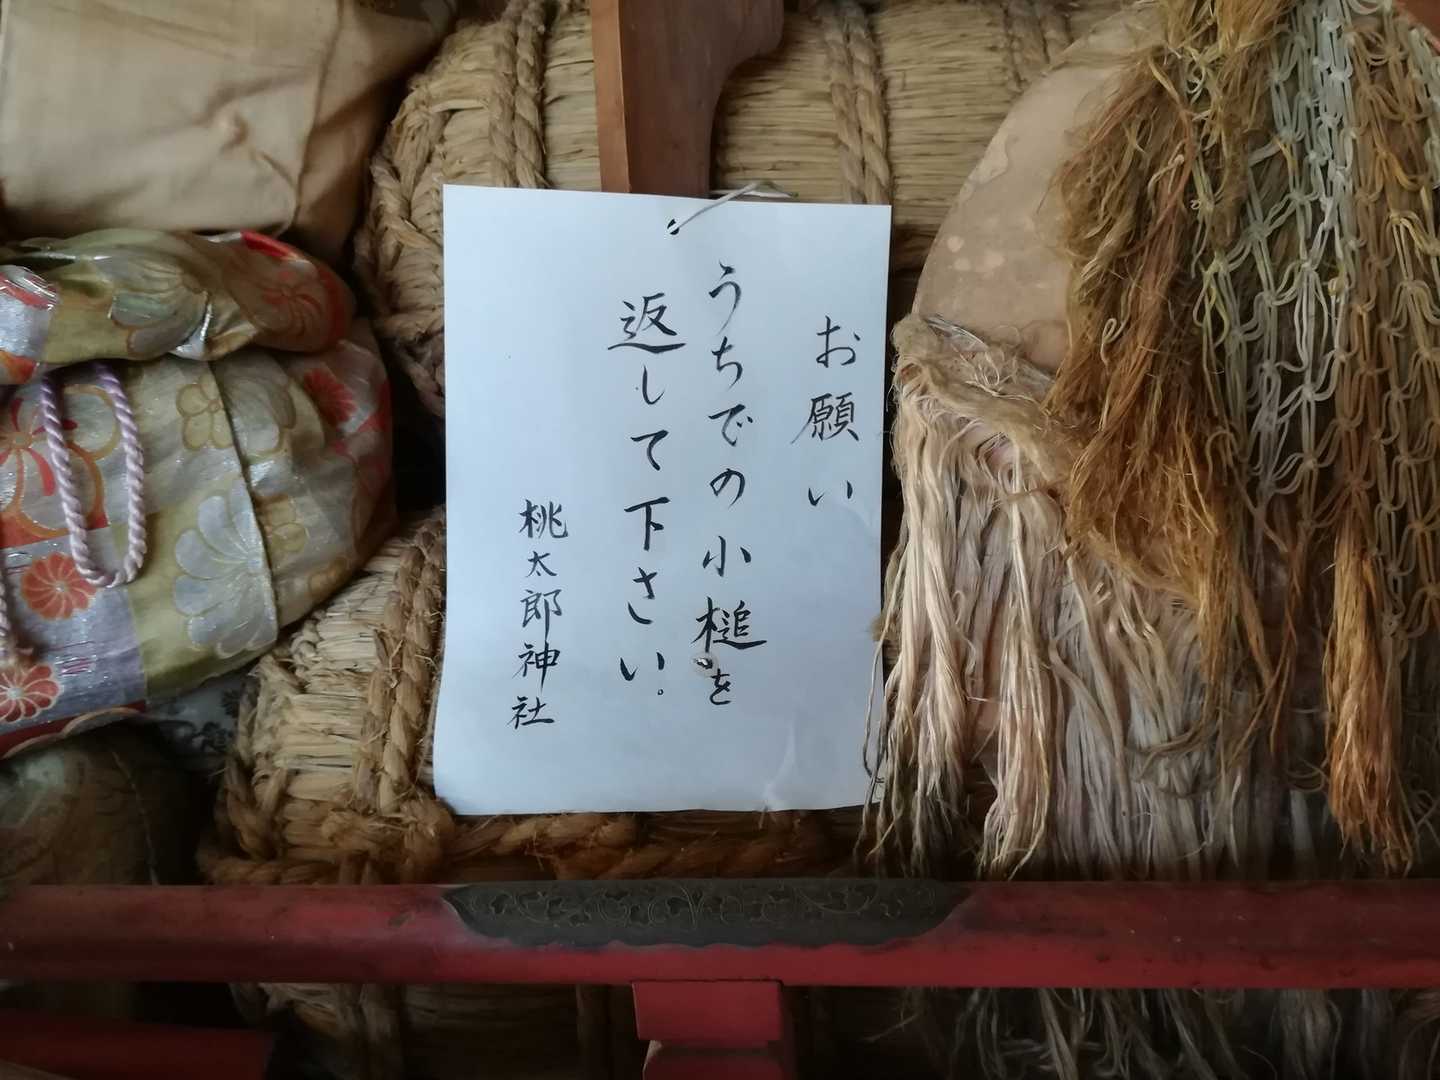 お願い
うちでの小槌を
返して下さい。
桃太郎神社